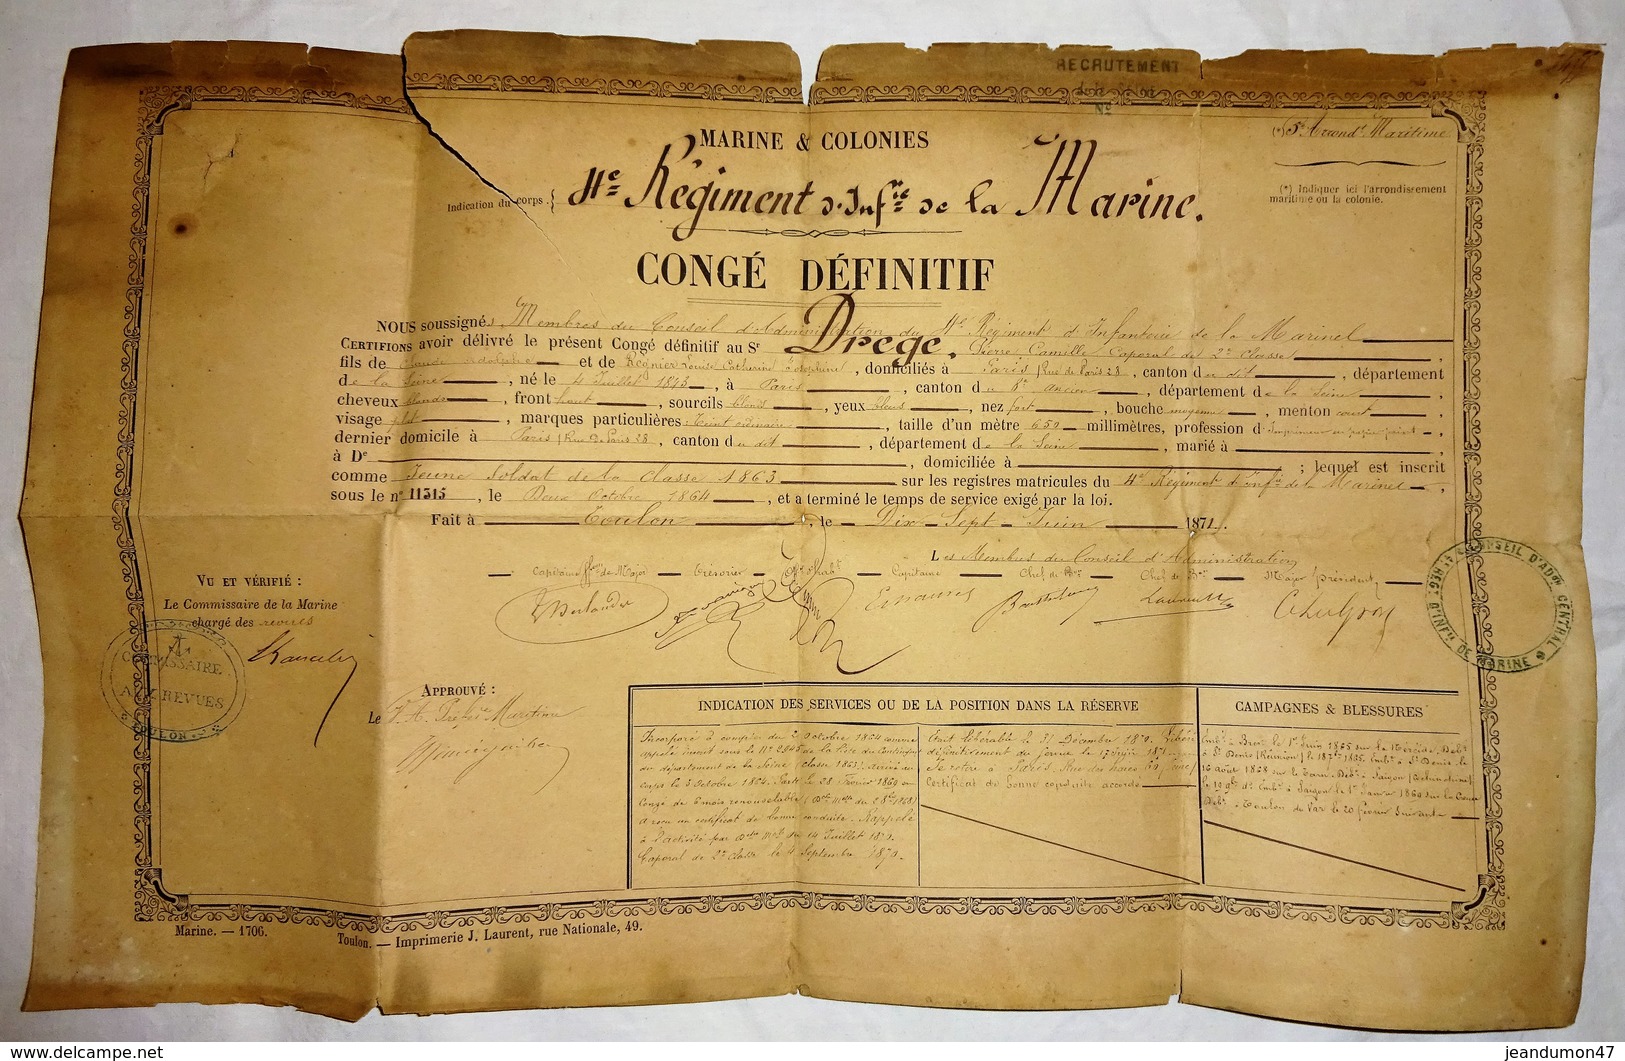 RECRUTEMENT
No
MARINE & COLONIES
(*) 5e Arrondt Maritime
Indication du corps. { 4e Régiment d'Infrie de la Marine.
(*) Indiquer ici l'arrondissement
maritime ou la colonie.
CONGÉ DÉFINITIF
NOUS soussignés Membres du Conseil d'Administration du 4e Régiment d'Infanterie de la Marine
CERTIFIONS avoir délivré le présent Congé définitif au Sr Drege. Pierre Camille Caporal de 2e Classe,
fils de Claude et de Régnier Louise Catherine Joséphine, domiciliés à Paris, Rue de Paris 28, canton du dit, département
de la Seine, né le 4 Juillet 1843, à Paris, canton du 6e ancien, département de la Seine,
cheveux blonds, front haut, sourcils blonds, yeux bleus, nez fort, bouche moyenne, menton court,
visage plat, marques particulières: Teint ordinaire, taille d'un mètre 650 millimètres, profession d'imprimeur en papier peint,
dernier domicile à Paris, Rue de Paris 28, canton du dit, département de la Seine, marié à
à De , domiciliée à ; lequel est inscrit
comme Jeune Soldat de la classe 1863 sur les registres matricules du 4e Régiment d'Infie de la Marine,
sous le no 11315, le Deux Octobre 1864, et a terminé le temps de service exigé par la loi.
Fait à Toulon, le Dix Sept Juin 1871.
Les Membres du Conseil d'Administration
Capitaine de Major Trésorier Capitaine Chef de Bon Chef de Bon Major président
VU ET VÉRIFIÉ :
Le Commissaire de la Marine
chargé des revues
COMMISSAIRE
AUX REVUES
TOULON
CONSEIL D'ADON CENTRAL
D'INFIE DE MARINE
APPROUVÉ :
Le V. A. Préfet Maritime
INDICATION DES SERVICES OU DE LA POSITION DANS LA RÉSERVE
CAMPAGNES & BLESSURES
Incorporé à compter du 2 octobre 1864 comme
appelé inscrit sous le No 2845 de la liste du Contingent
du département de la Seine (classe 1863) arrivé au
corps le 3 Octobre 1864. Parti le 28 Février 1869 en
Congé de 6 mois renouvelable
a reçu un certificat de bonne conduite. Rappelé
à l'activité par du 14 Juillet 1870.
Caporal de 2e classe le 4 Septembre 1870.
Était libérable le 31 Décembre 1870. Libéré
définitivement du service le 17 Juin 1871
Se retire à Paris, Rue des haies 69 (Seine)
Certificat de bonne conduite accordé
Embé à Brest le 1er Juin 1865 sur la Néréide. Débé
à St Denis (Réunion) le 1865. Embé à St Denis le
16 Août 1868 sur le Tarn. Débé à Saigon (Cochinchine)
le 19 9bre do Embé à Saigon le 1er Janvr 1869 sur la
Débé à Toulon du Var le 20 février Suivant
Marine. — 1706.
Toulon. — Imprimerie J. Laurent, rue Nationale, 49.
delcampe.net
jeandumon47